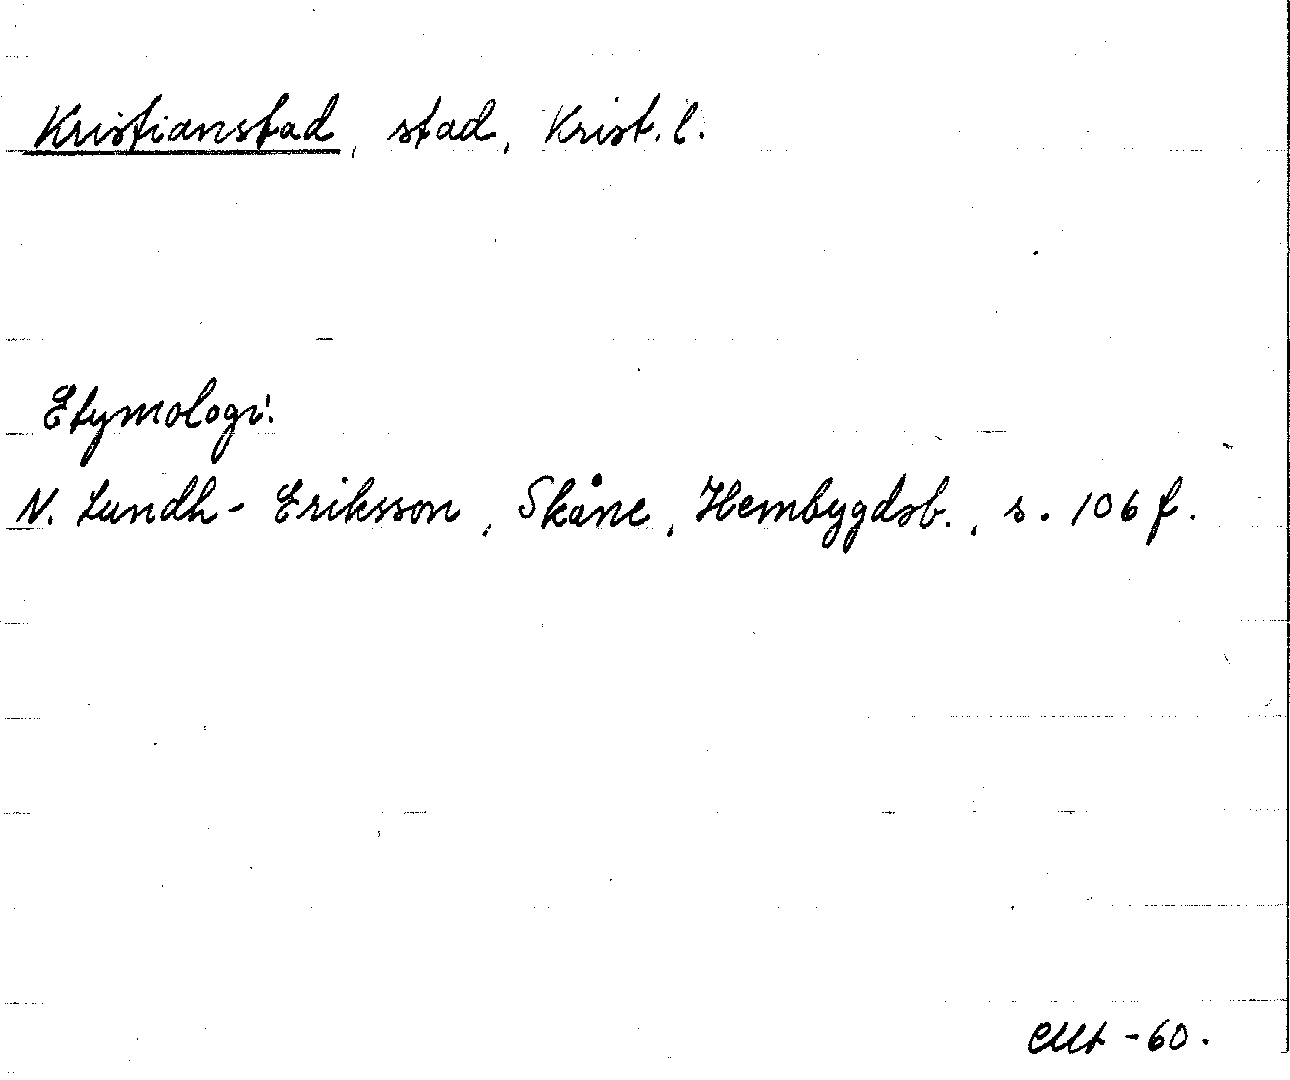 Kristianstad, stad, Krist. l.
Etymologi:
N. Lundh-Eriksson, Skåne, Hembygdsb., s. 106 f.
-60.